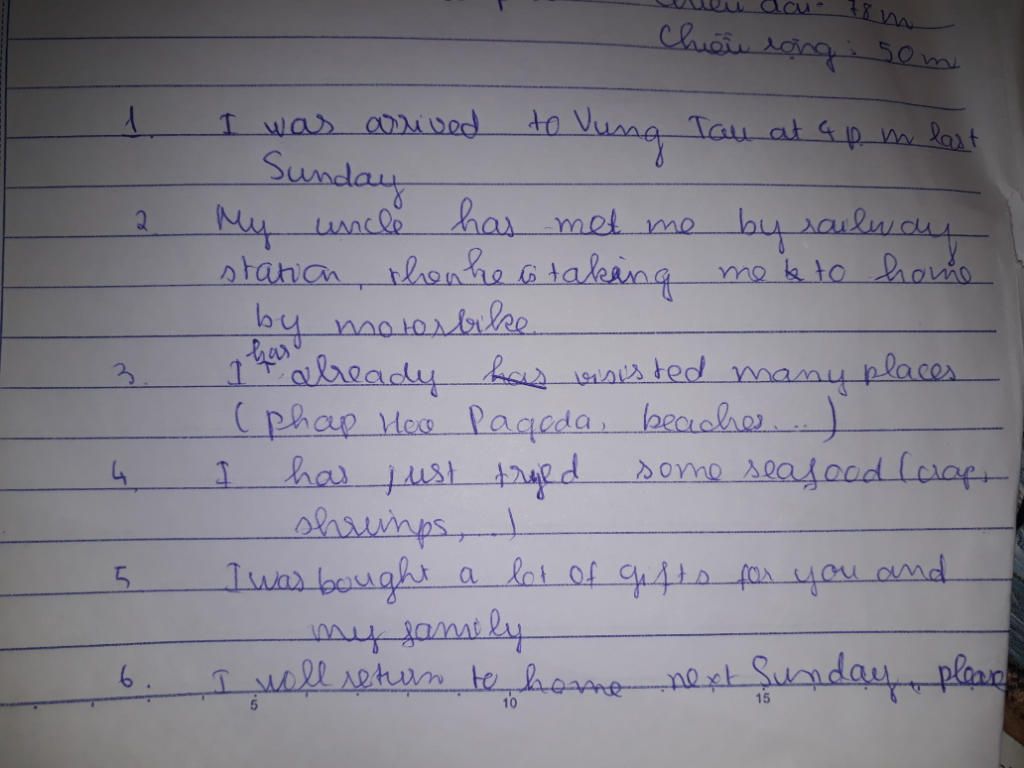 Chiều dài: 78 m
Chiều rộng: 50 m
1. I was arrived to Vung Tau at 4 p. m last
Sunday
2. My uncle has met me by railway
station, then he is taking me to home
by motorbike.
3. I has already visisted many places
(Phap Hoa Pagoda, beaches...)
4. I has just tryed some seafood (crap,
shrimps, ..)
5. I was bought a lot of gifts for you and
my family
6. I will return to home next Sunday, please
5 10 15